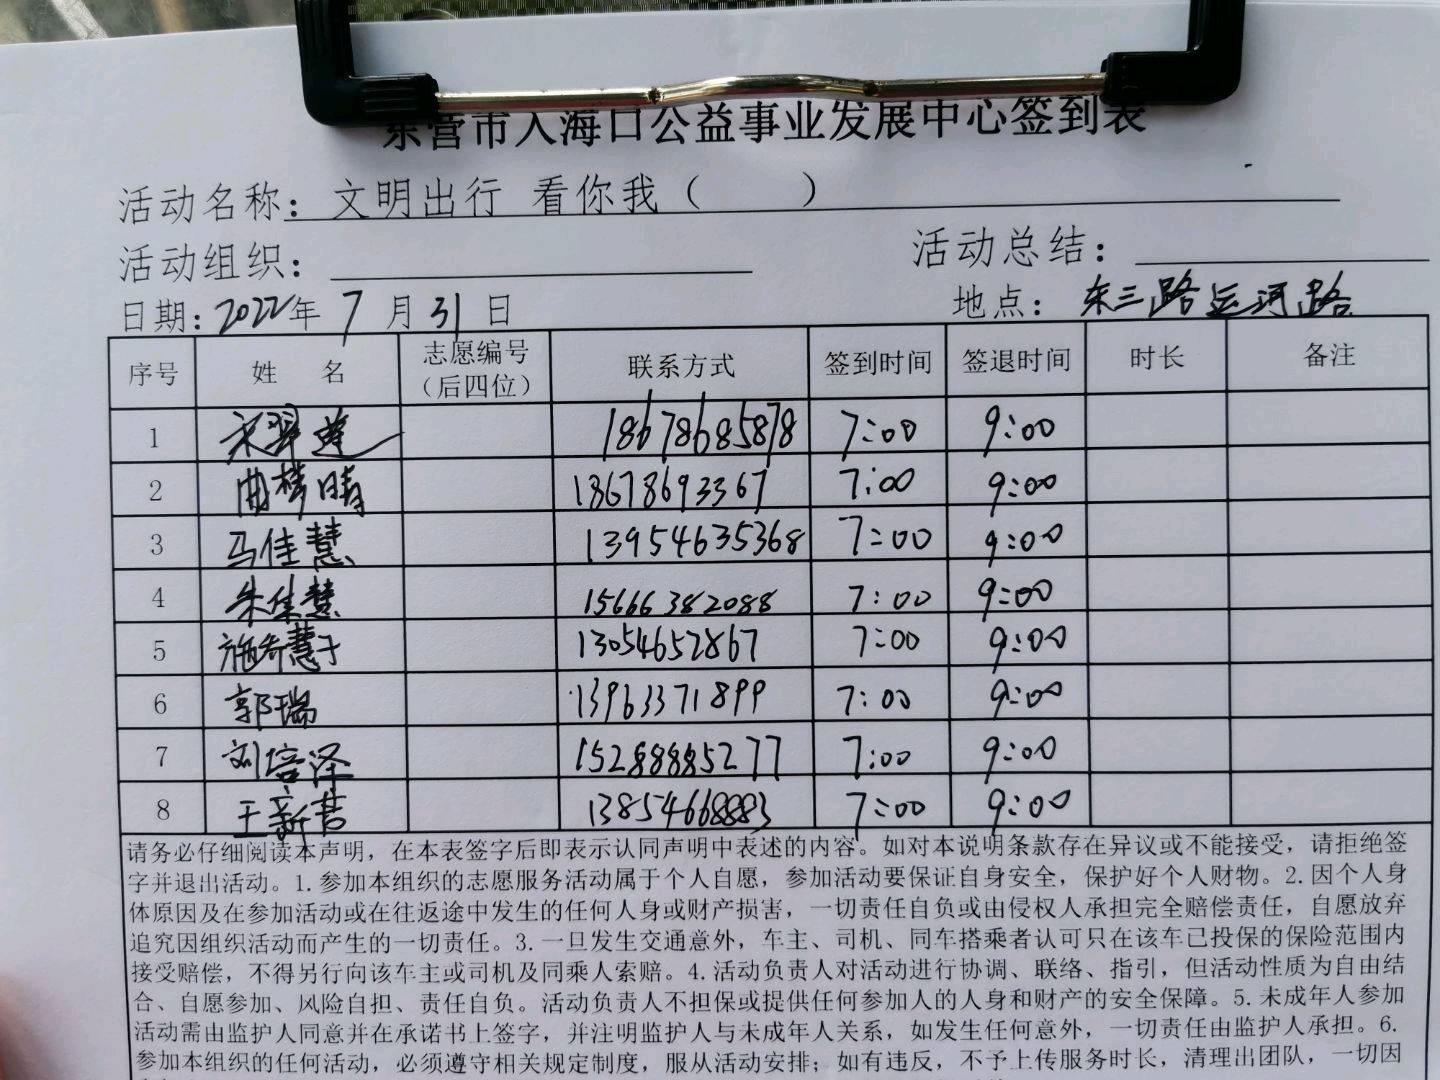 东营市入海口公益事业发展中心签到表
活动名称：文明出行 看你我（ ）
活动组织： 活动总结：
日期：2022年 7 月 31 日 地点：东三路运河路
序号 姓 名 志愿编号（后四位） 联系方式 签到时间 签退时间 时长 备注
1 宋翠莲 18678685878 7:00 9:00
2 曲梓晴 18678693367 7:00 9:00
3 马佳慧 13954635368 7:00 9:00
4 朱佳慧 15666382088 7:00 9:00
5 施乔慧子 13054652867 7:00 9:00
6 郭瑞 13963371899 7:00 9:00
7 刘培泽 15288885277 7:00 9:00
8 王新营 13854668883 7:00 9:00
请务必仔细阅读本声明，在本表签字后即表示认同声明中表述的内容。如对本说明条款存在异议或不能接受，请拒绝签
字并退出活动。1.参加本组织的志愿服务活动属于个人自愿，参加活动要保证自身安全，保护好个人财物。2.因个人身
体原因及在参加活动或在往返途中发生的任何人身或财产损害，一切责任自负或由侵权人承担完全赔偿责任，自愿放弃
追究因组织活动而产生的一切责任。3.一旦发生交通意外，车主、司机、同车搭乘者认可只在该车已投保的保险范围内
接受赔偿，不得另行向该车主或司机及同乘人索赔。4.活动负责人对活动进行协调、联络、指引，但活动性质为自由结
合、自愿参加、风险自担、责任自负。活动负责人不担保或提供任何参加人的人身和财产的安全保障。5.未成年人参加
活动需由监护人同意并在承诺书上签字，并注明监护人与未成年人关系，如发生任何意外，一切责任由监护人承担。6.
参加本组织的任何活动，必须遵守相关规定制度，服从活动安排；如有违反，不予上传服务时长，清理出团队，一切因